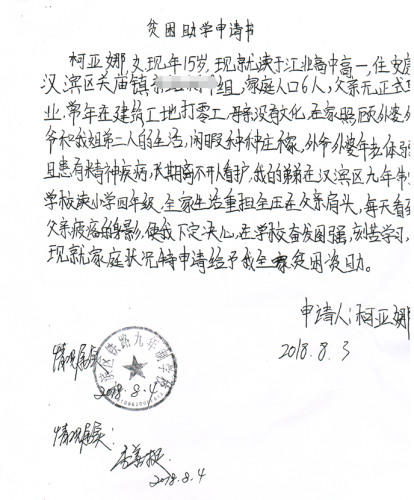 贫困助学申请书
柯亚娜 女 现年15岁,现就读于江北高中高一,住安康
汉滨区关庙镇 组,家庭人口6人,父亲无正式
业,常年在建筑工地打零工,母亲没有文化,在家照顾外婆外
爷和我姐弟二人的生活,闲暇种种庄稼,外爷外婆年老体弱
且患有精神疾病,长期离不开人看护,我的弟弟在汉滨区九年制
学校读小学四年级,全家生活重担全压在父亲肩头,每天看到
父亲疲倦的身影,使我下定决心,在学校奋发图强,刻苦学习,
现就家庭状况特申请给予我全家贫困资助。
申请人:柯亚娜
2018.8.3
情况属实
区铁路九年制学校
2018.8.4
情况属实:
2018.8.4